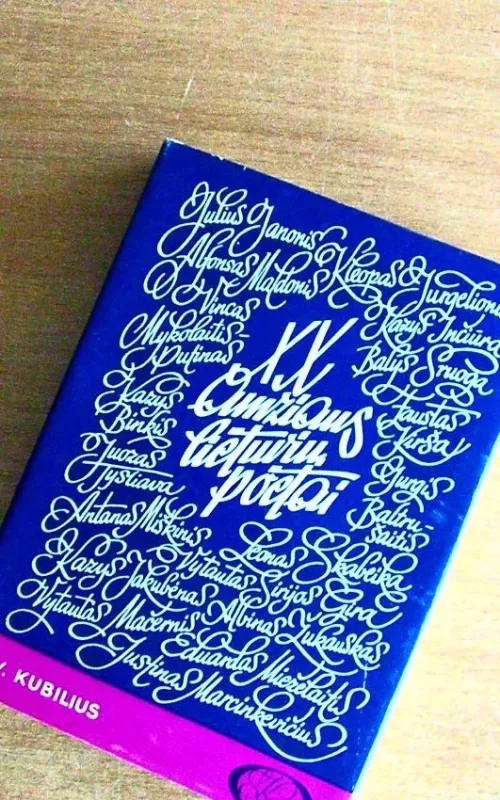 Julius Janonis
Kleopas Jurgelionis
Alfonsas Maldonis
Vincas
Mykolaitis-
Putinas
Kazys Inčiūra
Balys Sruoga
XX
Amžiaus
lietuvių
poetai
Kazys
Binkis
Faustas
Kirša
Juozas
Tysliava
Jurgis
Baltru-
šaitis
Antanas Miškinis
Leonas Skabeika
Kazys Jakubėnas
Vytautas Sirijos Gira
Vytautas Mačernis
Albinas Žukauskas
Eduardas Mieželaitis
Justinas Marcinkevičius
V. KUBILIUS